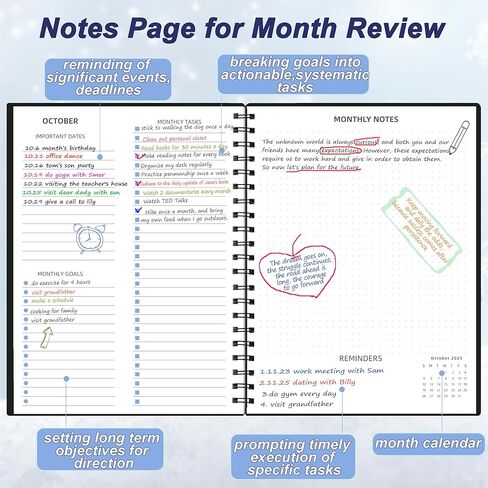 Notes Page for Month Review
reminding of
significant events,
deadlines
breaking goals into
actionable,systematic
tasks
OCTOBER
IMPORTANT DATES
10.6 month's birthday
10.11 office dance
10.16 tom's son party
10.19 do yoga with Smar
10.22 visiting the teacher's house
10.25 visit dear dady with son
10.29 give a call to lily
MONTHLY GOALS
do exercise for 4 hours
visit grandfather
make a schedule
cooking for family
visit grandfather
MONTHLY TASKS
stick to walking the dog once a day
Clean out personal closet
Read books for 30 minutes a day
Make reading notes for every book
Organize my desk regularly
Practice penmanship once a week
Adhere to the daily update of Jane's book
Watch 2 documentaries every month
Watch TED Talks
Hike once a month, and bring
my own food when I go outdoors.
MONTHLY NOTES
The unknown world is always curious, and both you and our
friends have many expectations. However, these expectations
require us to work hard and give in order to obtain them.
So now let's plan for the future.
keep moving forward
and defy the odds,
because success comes after
persistence
The dream goes on,
the struggle continues,
the road ahead is
long, the courage
to go forward.
REMINDERS
1.11.23 work meeting with Sam
2.11.25 dating with Billy
3.do gym every day
4. visit grandfather
October 2025
S M T W T F S
1 2 3 4
5 6 7 8 9 10 11
12 13 14 15 16 17 18
19 20 21 22 23 24 25
26 27 28 29 30 31
setting long term
objectives for
direction
prompting timely
execution of
specific tasks
month calendar